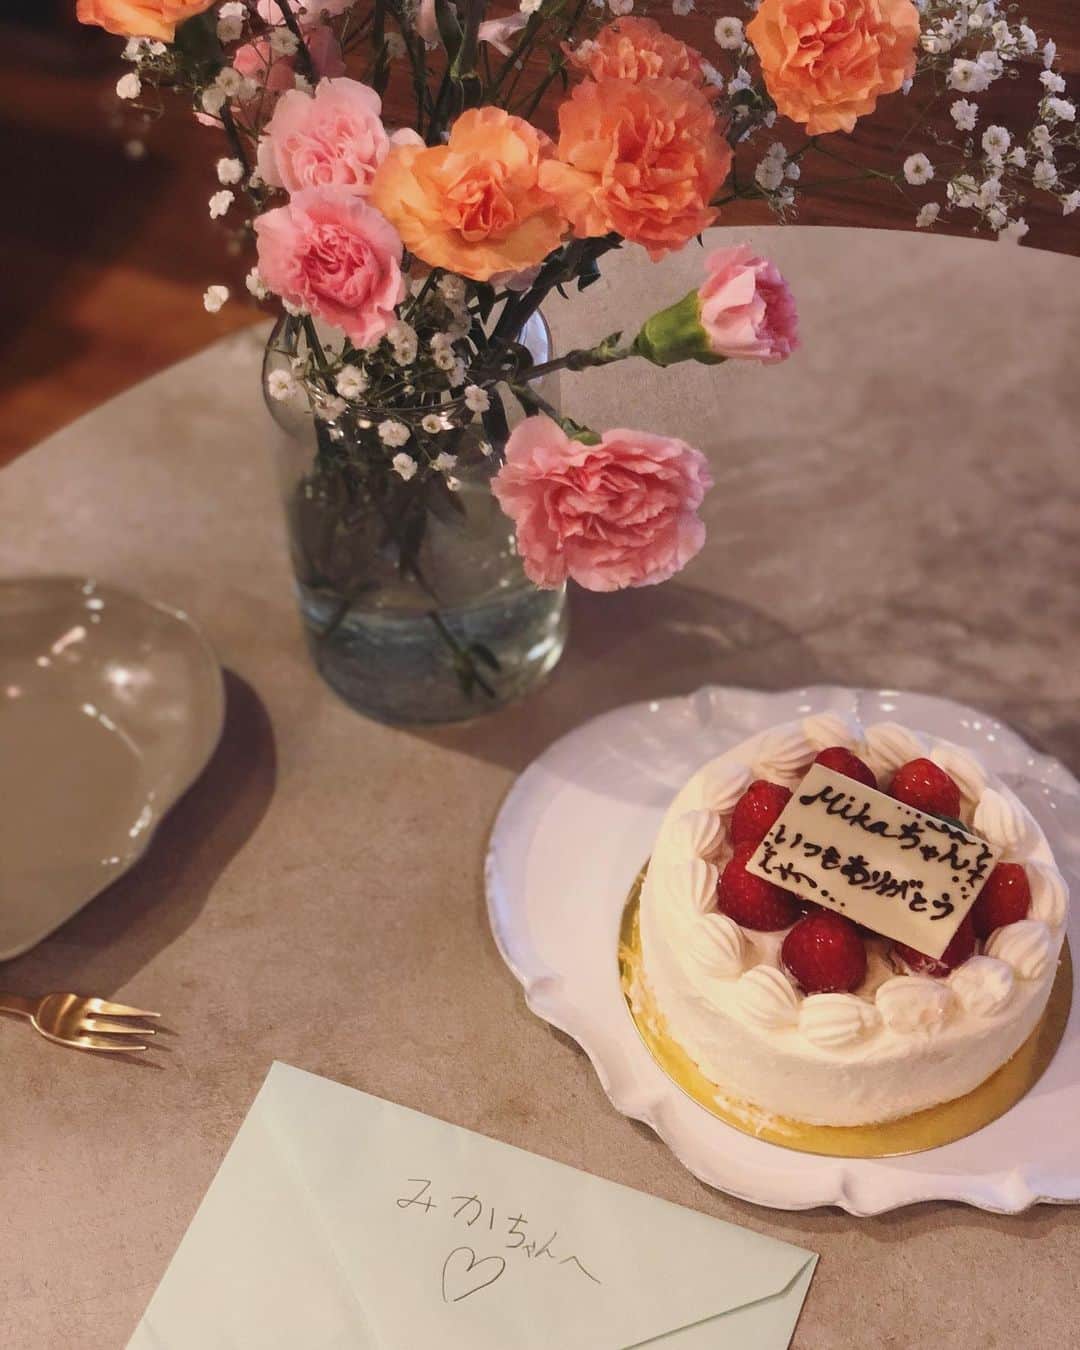 Mikaちゃん
いつもありがとう
みかちゃんへ
♡